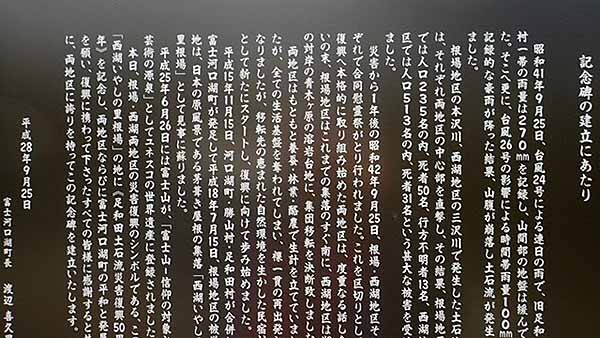 記念碑の建立にあたり
昭和41年9月25日、台風24号による連日の雨で、旧足和
村一帯の雨量は270mmを記録し、山間部の地盤は緩んで
た。そこへ更に、台風26号の影響による時間帯雨量100m
記録的な豪雨が降った結果、山腹が崩落し土石流が発生
ました。
根場地区の本沢川、西湖地区の三沢川で発生した土石
は、それぞれ両地区の中心部を直撃し、その結果、根場地
では人口235名の内、死者50名、行方不明者13名、西湖
区では人口513名の内、死者31名という甚大な被害を受
ました。
災害から1年後の昭和42年9月25日、根場・西湖地区そ
ぞれで合同慰霊祭がとり行われました。これを区切りとし
復興へ本格的に取り組み始めた両地区は、度重なる話し
いの末、根場地区はこれまでの集落のすぐ南に、西湖地区は
の対岸の青木ヶ原の溶岩台地に、集団移転を決断致しまし
両地区はもともと養蚕・林業・酪農で生計を立てていま
たが、全ての生活基盤を奪われてしまい、裸一貫の再出発
なりましたが、移転先の恵まれた自然環境を生かした民宿
として新たにスタートし、復興に向けて歩み始めました。
平成15年11月15日、河口湖町・勝山村・足和田村が合併
富士河口湖町が発足して平成18年7月15日、根場地区の被
地は、日本の原風景である茅葺き屋根の集落「西湖いやし
里根場」として見事に蘇りました。
平成25年6月26日には富士山が、「富士山−信仰の対象
芸術の源泉」としてユネスコの世界遺産に登録されました
本日、根場・西湖両地区の災害復興のシンボルである、こ
「西湖いやしの里根場」の地に「足和田土石流災害復興50
年」を記念し、両地区ならびに富士河口湖町の平和と発
を願い、復興に携わって下さったすべての皆様に感謝すると
に、両地区に誇りを持ってこの記念碑を建立いたします。
平成28年9月25日
富士河口湖町長 渡辺 喜久